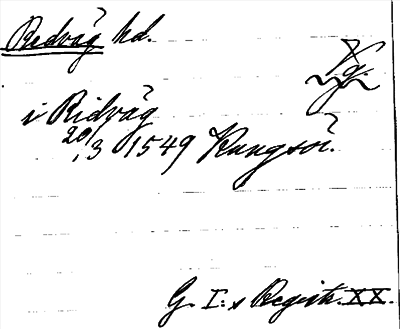 Redväg hd.
Vg.
i Ridvåg
20/3 1549 Kungsör.
G. I:s Registr. XX.